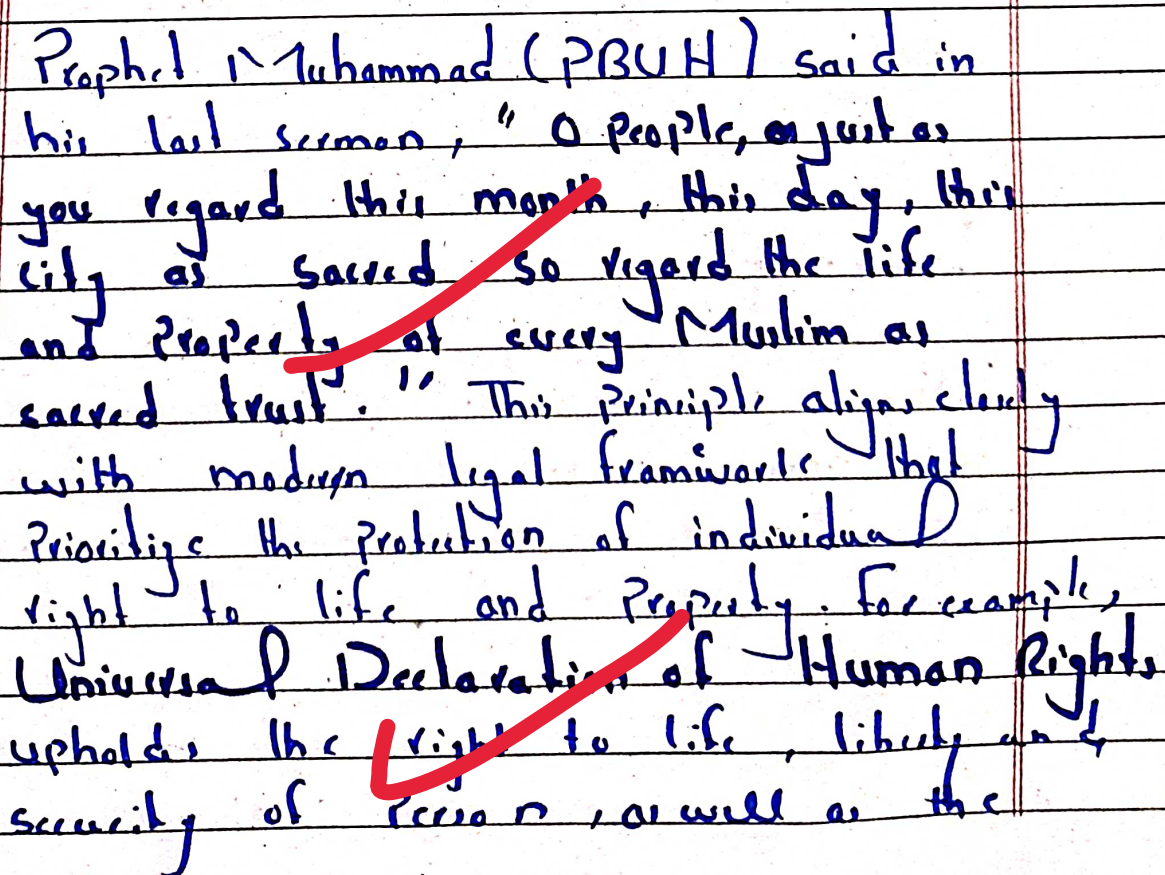 Prophet Muhammad (PBUH) said in
his last sermon, "O People, just as
you regard this month, this day, this
city as sacred so regard the life
and Property of every Muslim as
sacred trust." This Principle aligns closely
with modern legal framework that
Prioritize the Protection of individual
right to life and Property. For example,
Universal Declaration of Human Rights
upholds the right to life, liberty and
security of Person, as well as the